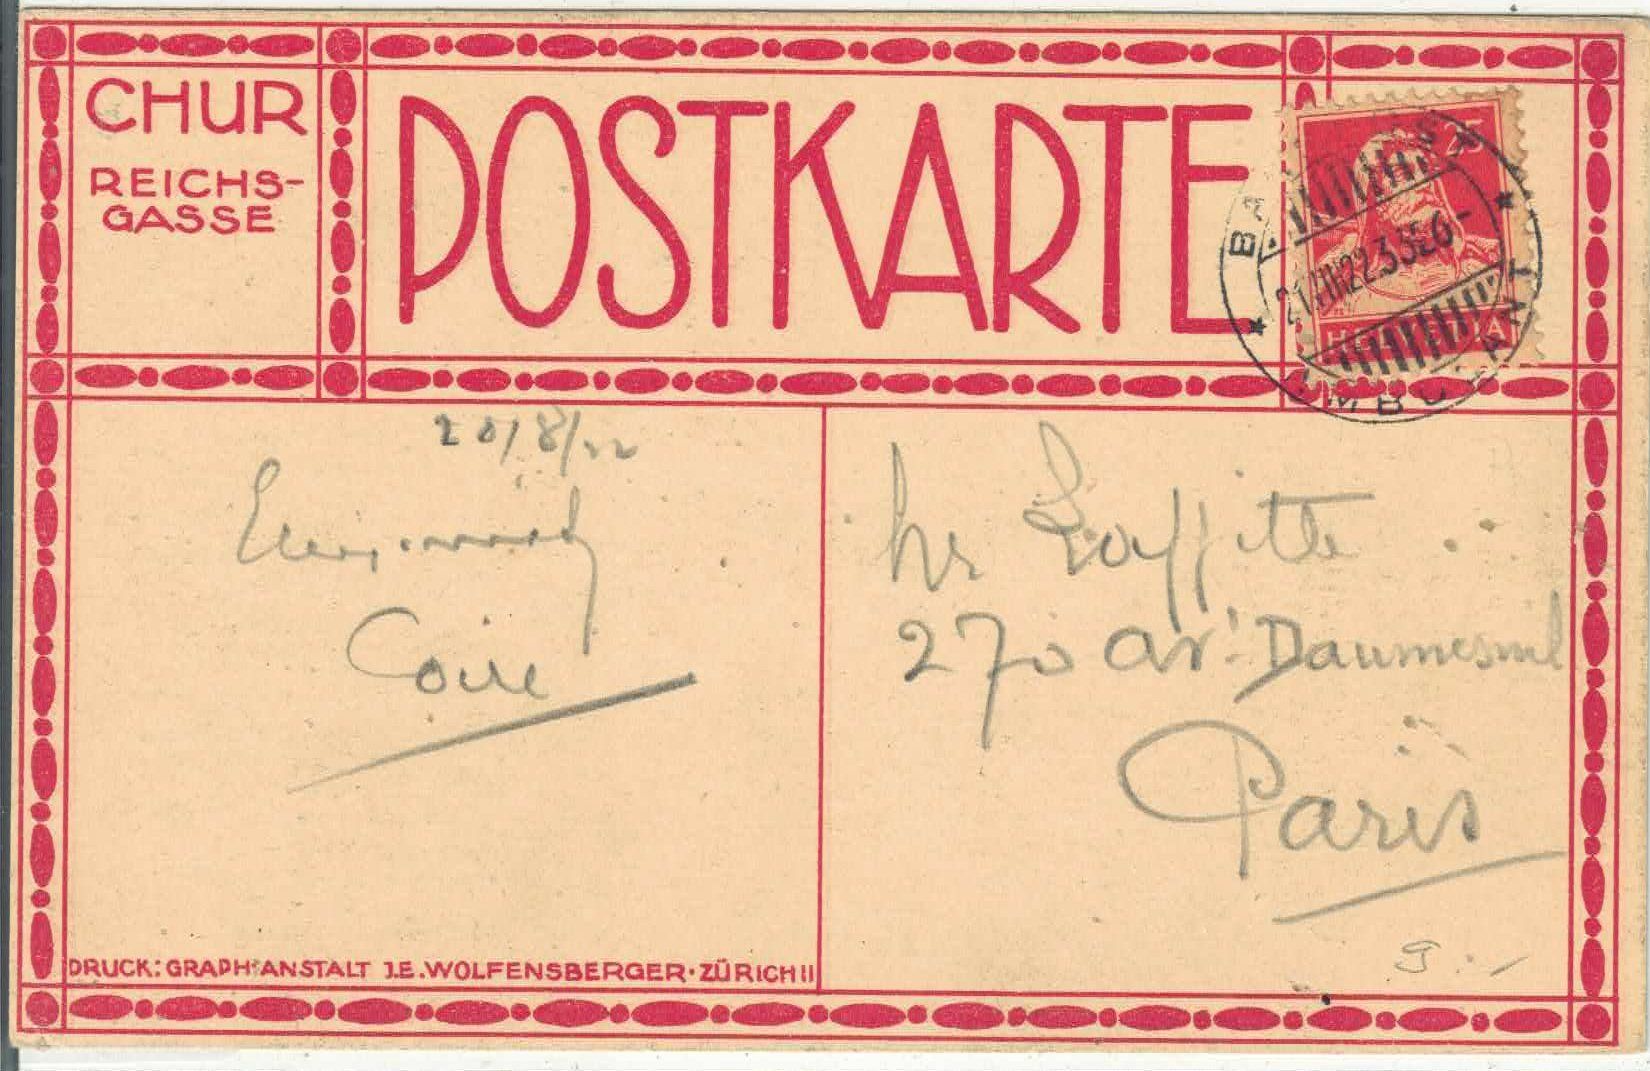 CHUR
REICHS-
GASSE
POSTKARTE
25
HELVETIA
AMBULANT
20/8/22
Coire
Mr Laffitte
270 av. Daumesnil
Paris
DRUCK: GRAPH·ANSTALT J.E.WOLFENSBERGER·ZÜRICH II
9.-